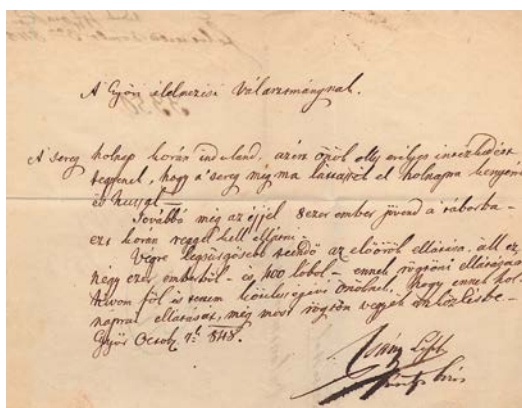 A Győri élelmezési Választmánynak.
A sereg holnap korán indúland, azért önök olly erélyes intézkedést
tegyenek, hogy a' sereg még ma láttassék el holnapra kenyérrel
és hussal —
Továbbá még az éjjel 8 ezer ember jövend a' táborba —
ezt korán reggel kell ellátni —
Végre legsürgősebb teendő az előörök ellátása, áll ez
négy ezer emberből — és 400 lóból — ennek rögtöni ellátására
hívom föl és teszem önöknek, hogy ennek hol-
naprai ellátását, még most rögtön vegyék
Győr Octob. 1848.
Csány